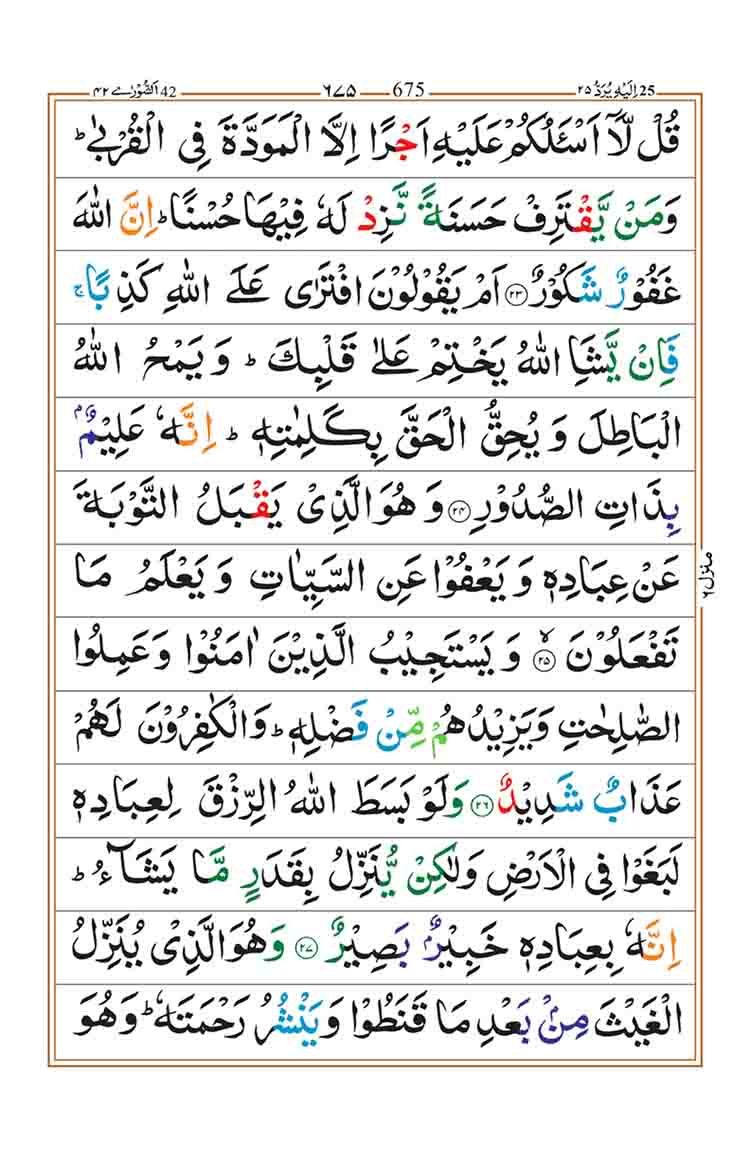 25 اِلَيْهِ يُرَدُّ ٢٥ 675 ٦٧٥ 42 اَلشُّوْرٰى ٤٢
قُلْ لَّاۤ اَسْـَٔلُكُمْ عَلَيْهِ اَجْرًا اِلَّا الْمَوَدَّةَ فِى الْقُرْبٰى ؕ
وَمَنْ يَّقْتَرِفْ حَسَنَةً نَّزِدْ لَهٗ فِيْهَا حُسْنًا ؕ اِنَّ اللّٰهَ
غَفُوْرٌ شَكُوْرٌ ۝٢٣ اَمْ يَقُوْلُوْنَ افْتَرٰى عَلَى اللّٰهِ كَذِبًا ۚ
فَاِنْ يَّشَاِ اللّٰهُ يَخْتِمْ عَلٰى قَلْبِكَ ؕ وَيَمْحُ اللّٰهُ
الْبَاطِلَ وَيُحِقُّ الْحَقَّ بِكَلِمٰتِهٖ ؕ اِنَّهٗ عَلِيْمٌۢ
بِذَاتِ الصُّدُوْرِ ۝٢٤ وَهُوَ الَّذِىْ يَقْبَلُ التَّوْبَةَ
عَنْ عِبَادِهٖ وَيَعْفُوْا عَنِ السَّيِّاٰتِ وَيَعْلَمُ مَا
تَفْعَلُوْنَ ۙ۝٢٥ وَيَسْتَجِيْبُ الَّذِيْنَ اٰمَنُوْا وَعَمِلُوا
الصّٰلِحٰتِ وَيَزِيْدُهُمْ مِّنْ فَضْلِهٖ ؕ وَالْكٰفِرُوْنَ لَهُمْ
عَذَابٌ شَدِيْدٌ ۝٢٦ وَلَوْ بَسَطَ اللّٰهُ الرِّزْقَ لِعِبَادِهٖ
لَبَغَوْا فِى الْاَرْضِ وَلٰكِنْ يُّنَزِّلُ بِقَدَرٍ مَّا يَشَآءُ ؕ
اِنَّهٗ بِعِبَادِهٖ خَبِيْرٌۢ بَصِيْرٌ ۝٢٧ وَهُوَ الَّذِىْ يُنَزِّلُ
الْغَيْثَ مِنْۢ بَعْدِ مَا قَنَطُوْا وَيَنْشُرُ رَحْمَتَهٗ ؕ وَهُوَ
منزل ٦